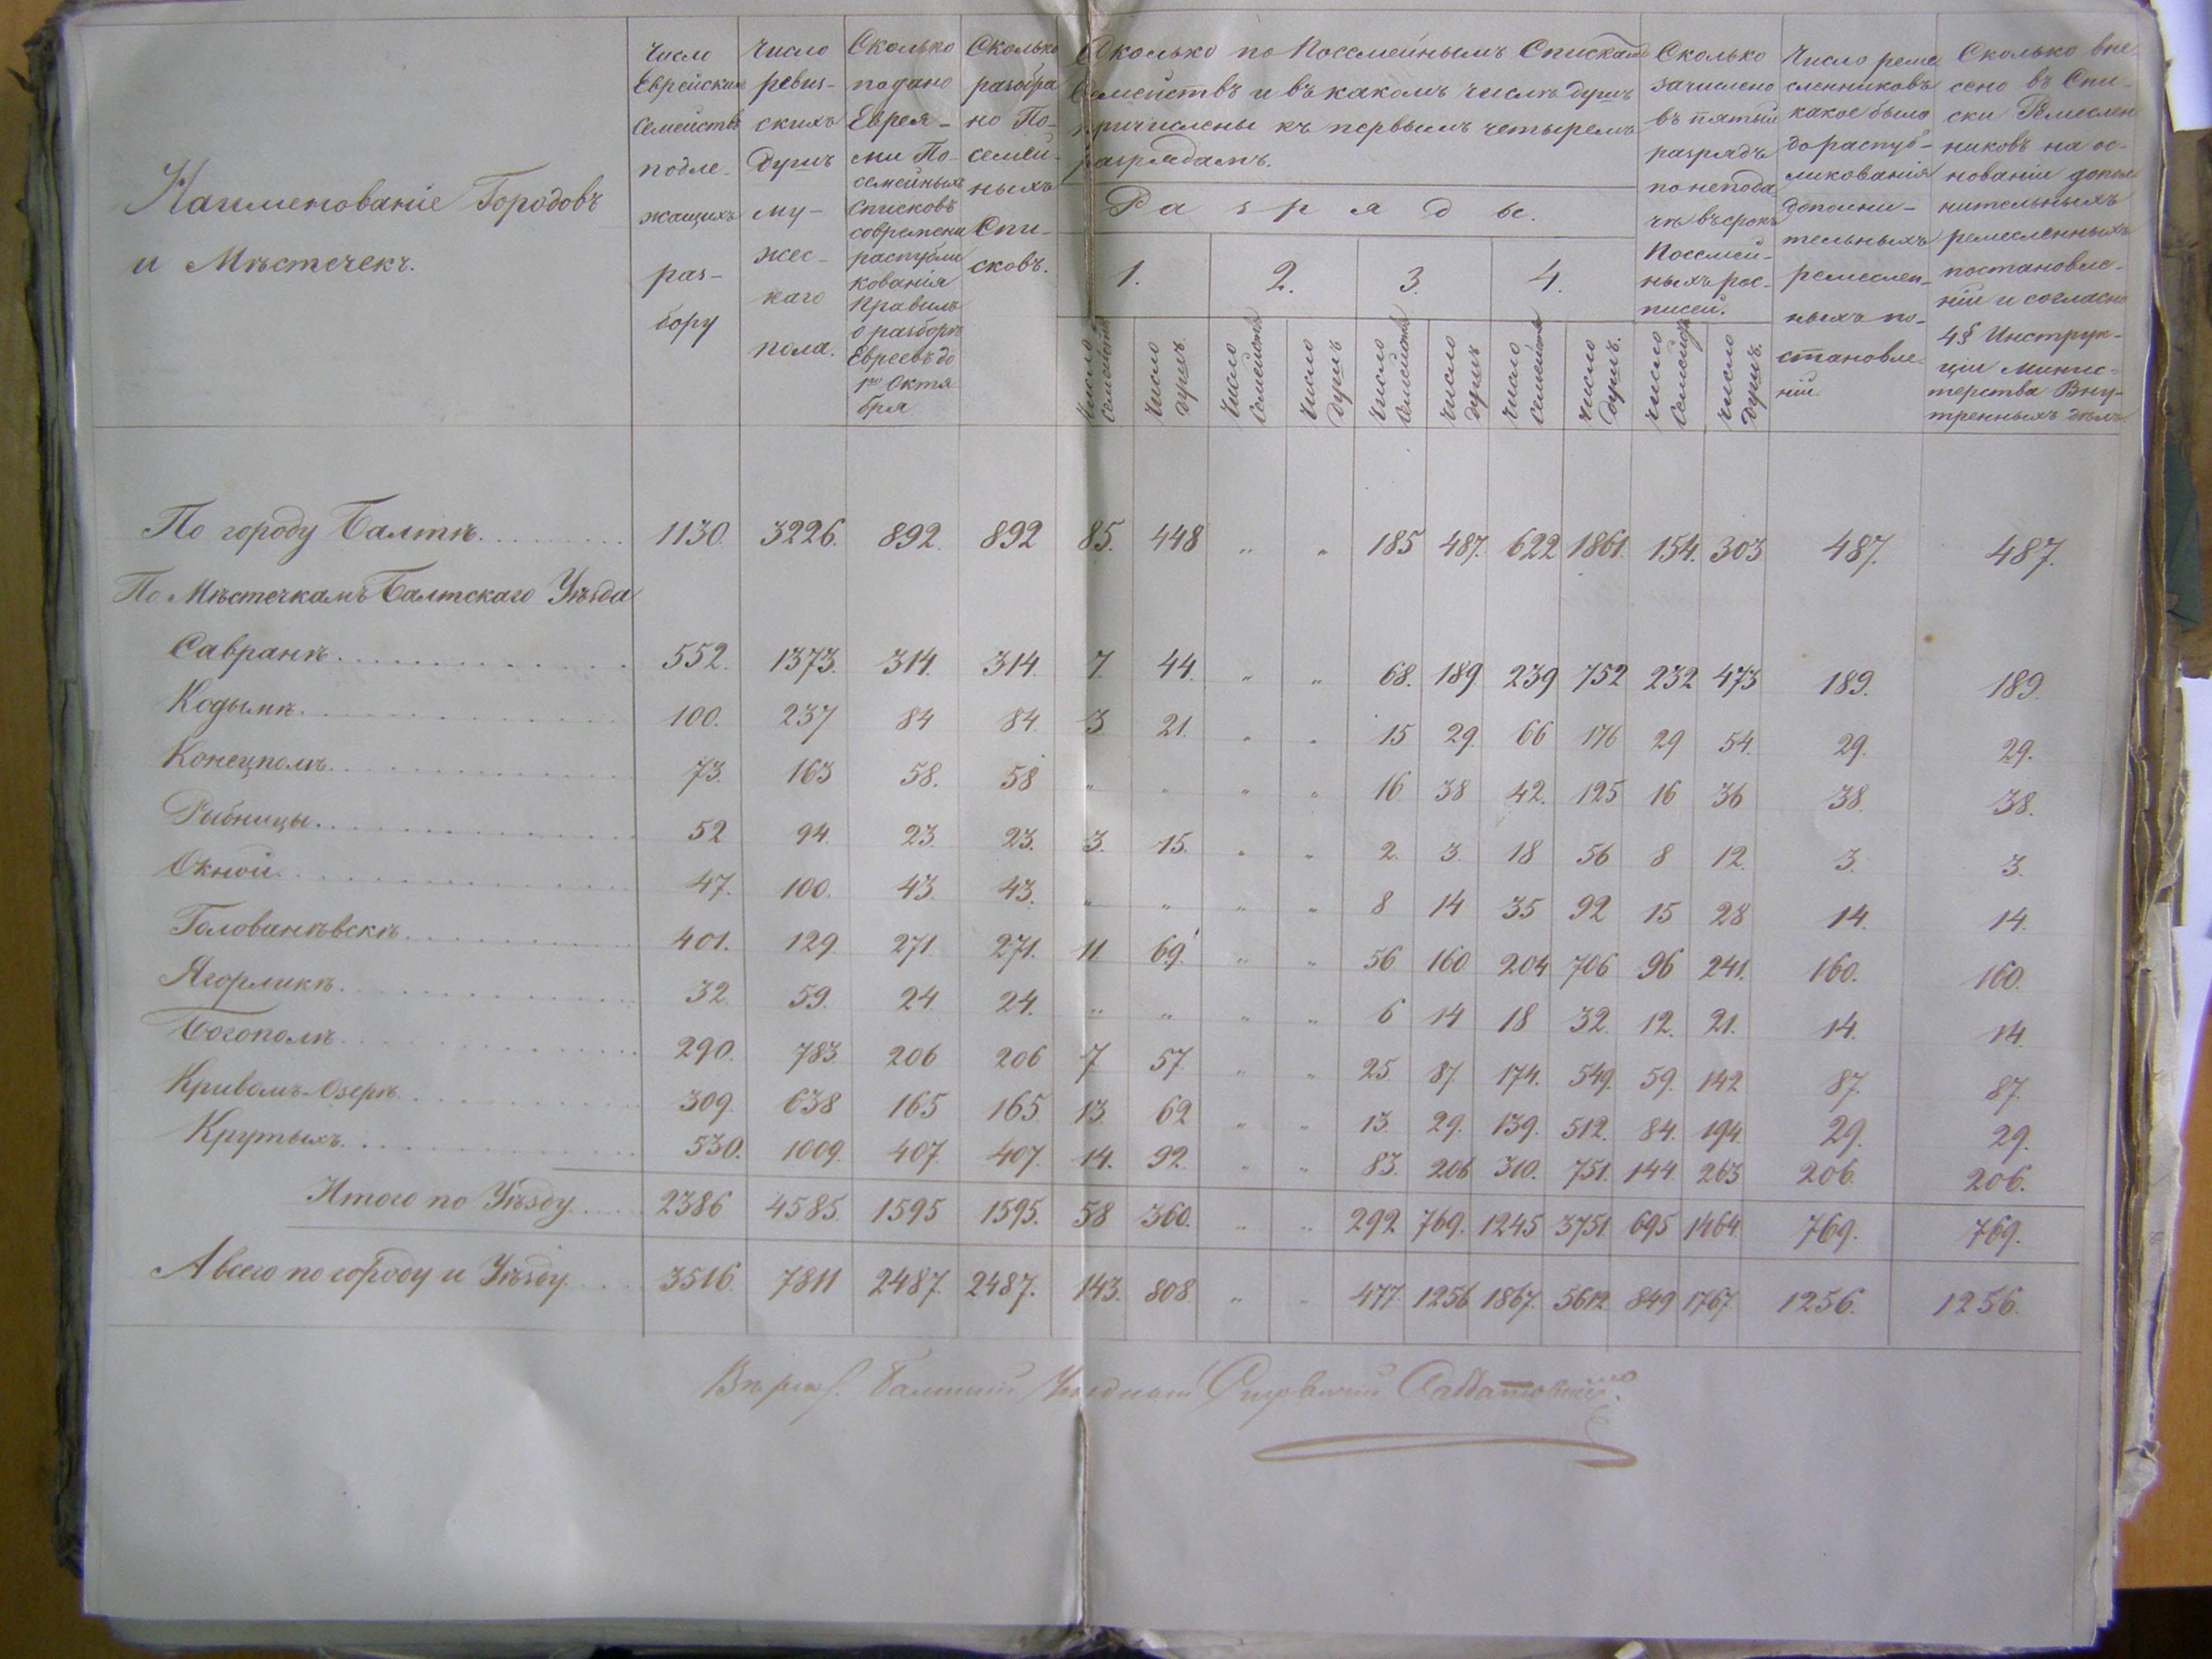 Наименованіе Городовъ
и Мѣстечекъ.
Число
Еврейскихъ
Семействъ
подле-
жащихъ
раз-
бору
Число
ревиз-
скихъ
Душъ
му-
жес-
каго
пола.
Сколько
подано
Еврея-
ми По-
семейныхъ
Списковъ
со времени
распубли
кованія
Правилъ
о разборѣ
Евреевъ до
1го Октя-
бря
Сколько
разобра
но По-
семей-
ныхъ
Спи-
сковъ.
Сколько по Посемейнымъ Спискамъ
Семействъ и въ какомъ числѣ душъ
причислены къ первымъ четыремъ
разрядамъ.
Разряды.
1. 2. 3. 4.
Число Семействъ
Число душъ.
Число Семействъ
Число душъ
Число Семействъ
Число душъ
Число Семействъ
Число душъ.
Сколько
зачислено
въ пятый
разрядъ
по непода
чѣ въ срокъ
Посемей-
ныхъ рос-
писей.
Число Семействъ
Число Душъ.
Число реме
сленниковъ
какое было
до распуб-
ликованія
дополни-
тельныхъ
ремеслен-
ныхъ по-
становле-
ній.
Сколько вне
сено въ Спи-
ски Ремеслен
никовъ на ос-
нованіи допол
нительныхъ
ремесленныхъ
постановле-
ній и согласно
4§ Инструк-
ціи Минис-
терства Вну-
тренныхъ дѣлъ.
По городу Балтѣ. 1130. 3226. 892. 892 85. 448 „ „ 185 487. 622 1861. 154. 303 487. 487.
По Мѣстечкамъ Балтскаго Уѣзда
Савранѣ. 552. 1373. 314. 314. 7. 44. „ „ 68. 189 239 752 232 473 189. 189.
Кодымѣ. 100. 237 84 84. 3 21. „ „ 15 29. 66 176 29 54. 29. 29.
Конецполѣ. 73. 163 58. 58 „ „ „ „ 16. 38 42. 125 16 36 38. 38.
Рыбницы. 52 94. 23. 23. 3. 15. „ „ 2. 3. 18 56 8 12. 3. 3.
Окной. 47. 100. 43. 43. „ „ „ „ 8 14 35 92 15 28 14. 14.
Голованѣвскѣ. 401. 129 271 271. 11 69. „ „ 56 160 204 706 96 241. 160. 160.
Ягорликѣ. 32. 59. 24. 24. „ „ „ „ 6 14 18 32. 12. 21. 14. 14.
Богополѣ. 290. 783 206 206 7 57 „ „ 25 87. 174. 549. 59. 142 87. 87.
Кривомъ-Озерѣ. 309. 638 165 165. 13. 62 „ „ 13. 29. 139. 512. 84. 194. 29. 29.
Крутыхъ. 530. 1009. 407. 407. 14. 92. „ „ 83. 206 310. 751. 144. 263 206. 206.
Итого по Уѣзду. 2386 4585. 1595 1595. 58 360. „ „ 292 769. 1245 3751. 695 1464. 769. 769.
А всего по городу и Уѣзду. 3516. 7811 2487. 2487. 143. 808. „ „ 477. 1256 1867. 5612 849 1767 1256. 1256.